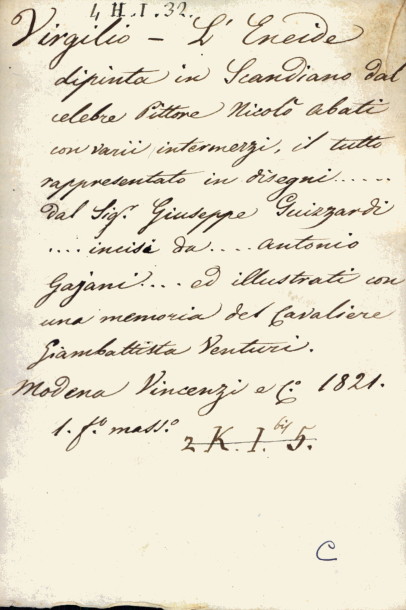 4 H. I. 32.
Virgilio – L'Eneide
dipinta in Scandiano dal
celebre Pittore Nicolò Abati
con varii intermezzi, il tutto
rappresentato in disegni.....
dal Sigr. Giuseppe Guizzardi
....incisi da.... Antonio
Gajani.... ed illustrati con
una memoria del Cavaliere
Giambattista Venturi.
Modena Vincenzi e Co. 1821.
1. fo. masso.
2 K. I. bis 5.
C